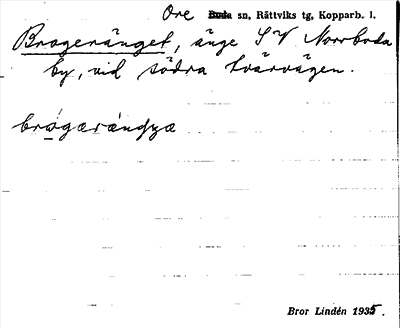 Ore Boda sn, Rättviks tg, Kopparb. l.
Brageränget, änge SV Norrboda
by, vid södra tvärvägen.
bragærándyæ
Bror Lindén 1935.